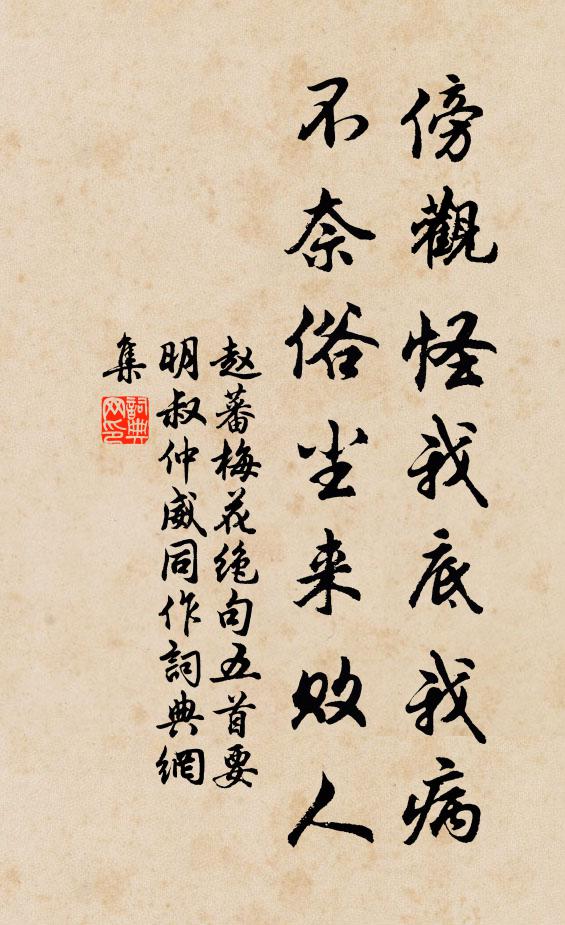 傍觀怪我底我病
不奈俗尘来败人
赵蕃梅花绝句五首要
明叔仲威同作詞典網
集
詞典網印